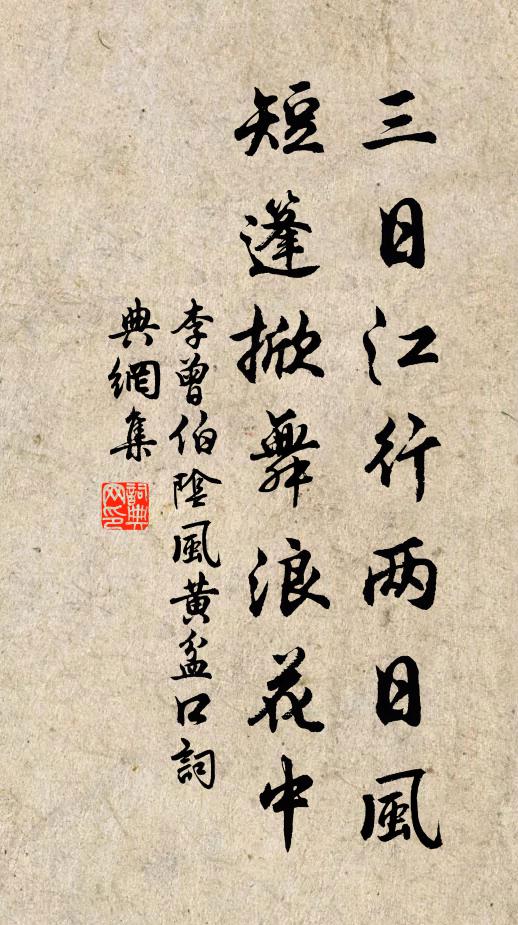 三日江行两日風
短蓬掀舞浪花中
李曾伯陰風黄盆口詞
典網集
詞典
网印